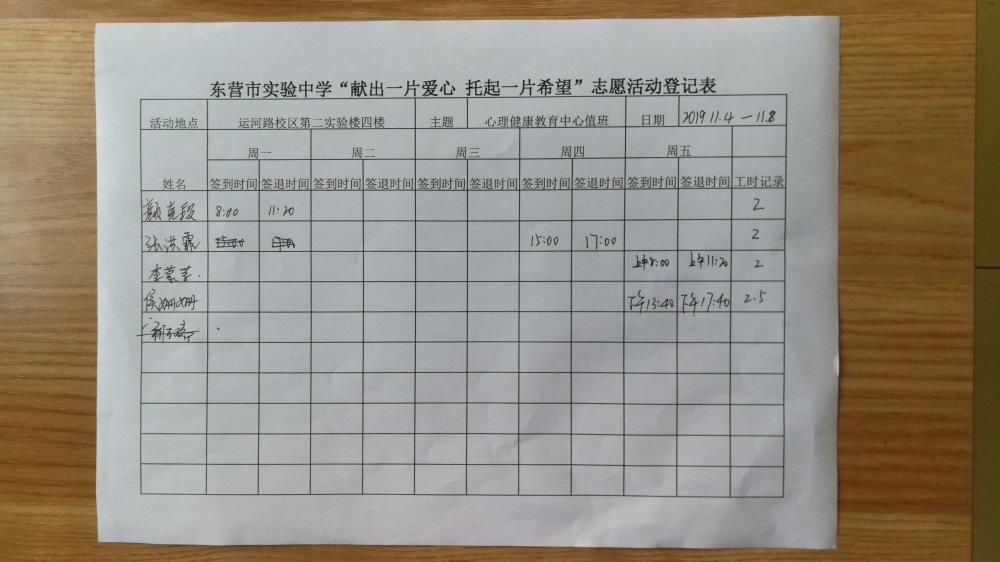 东营市实验中学“献出一片爱心 托起一片希望”志愿活动登记表
活动地点 运河路校区第二实验楼四楼 主题 心理健康教育中心值班 日期 2019.11.4 — 11.8
周一 周二 周三 周四 周五
姓名 签到时间 签退时间 签到时间 签退时间 签到时间 签退时间 签到时间 签退时间 签到时间 签退时间 工时记录
8:00 11:20 2
张洪霖 15:00 17:00 2
李蒙 上午8:00 上午11:20 2
侯姗姗 下午13:40 下午17:40 2.5